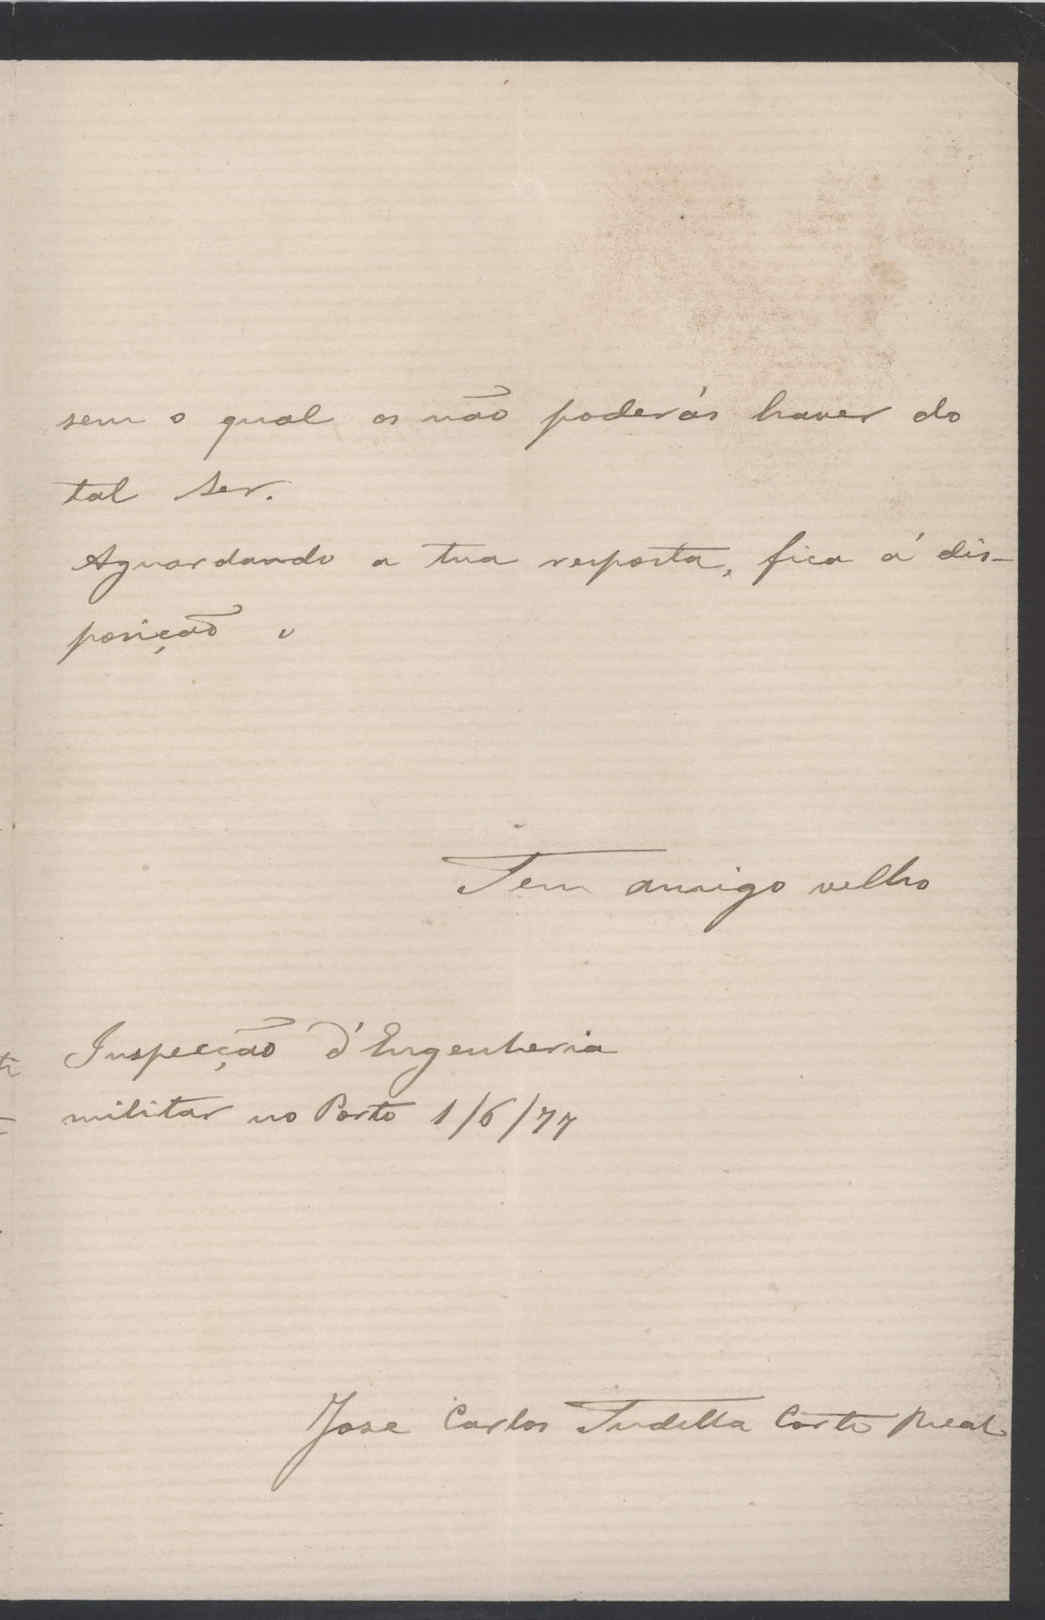 sem o qual os não poderás haver do
tal ser.
Aguardando a tua resposta, fica á dis-
posição o
Teu amigo velho
Inspecção d'Engenheria
militar no Porto 1/6/77
Jose Carlos Tudella Corte Real